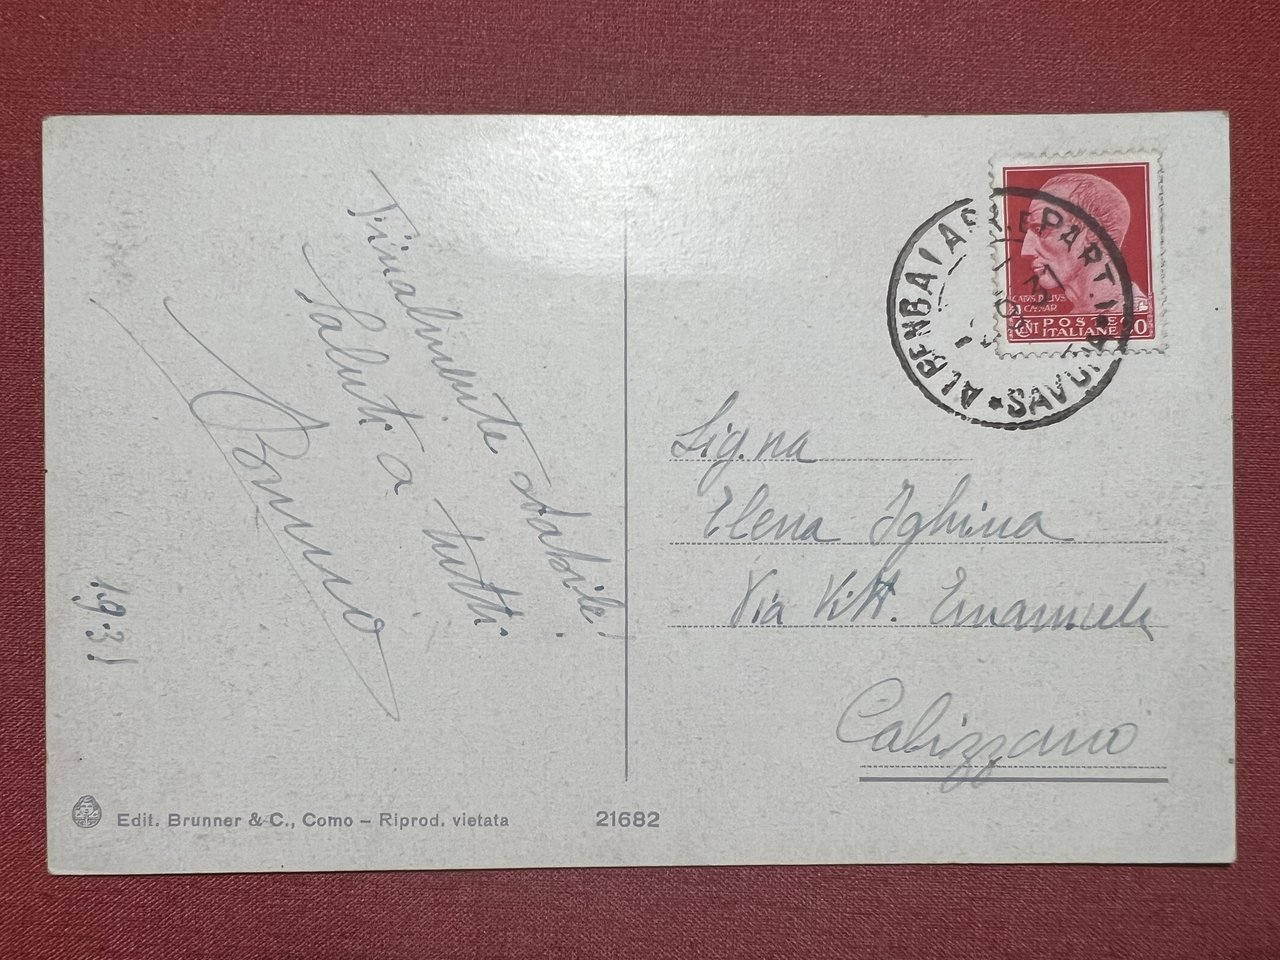 Finalmente stabile!
Saluti a tutti.
Bruno
1931
ALBENGA ARR. E PART.
SAVONA
CAIVS IVLIVS
CAESAR
CENT POSTE ITALIANE 20
Sig.na
Elena Ighina
Via Vitt. Emanuele
Calizzano
Edit. Brunner & C., Como – Riprod. vietata 21682